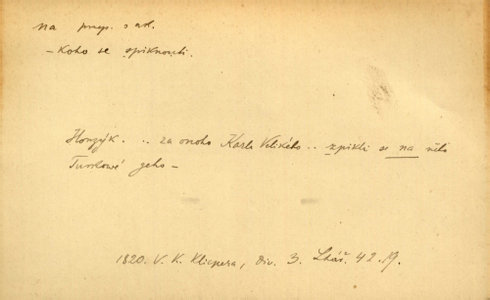 na prep. s ak.
– Koho se spiknouti.
Honzýk . .. za onoho Karla Velikého .. zpikli se na něho
Turkowé geho –
1820. V. K. Klicpera, Div. 3. Lhář. 42.